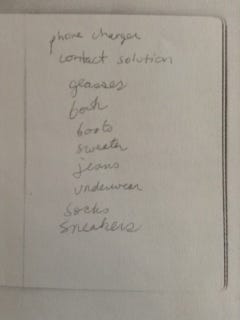 phone charger
contact solution
glasses
boots
sweater
jeans
underwear
socks
sneakers